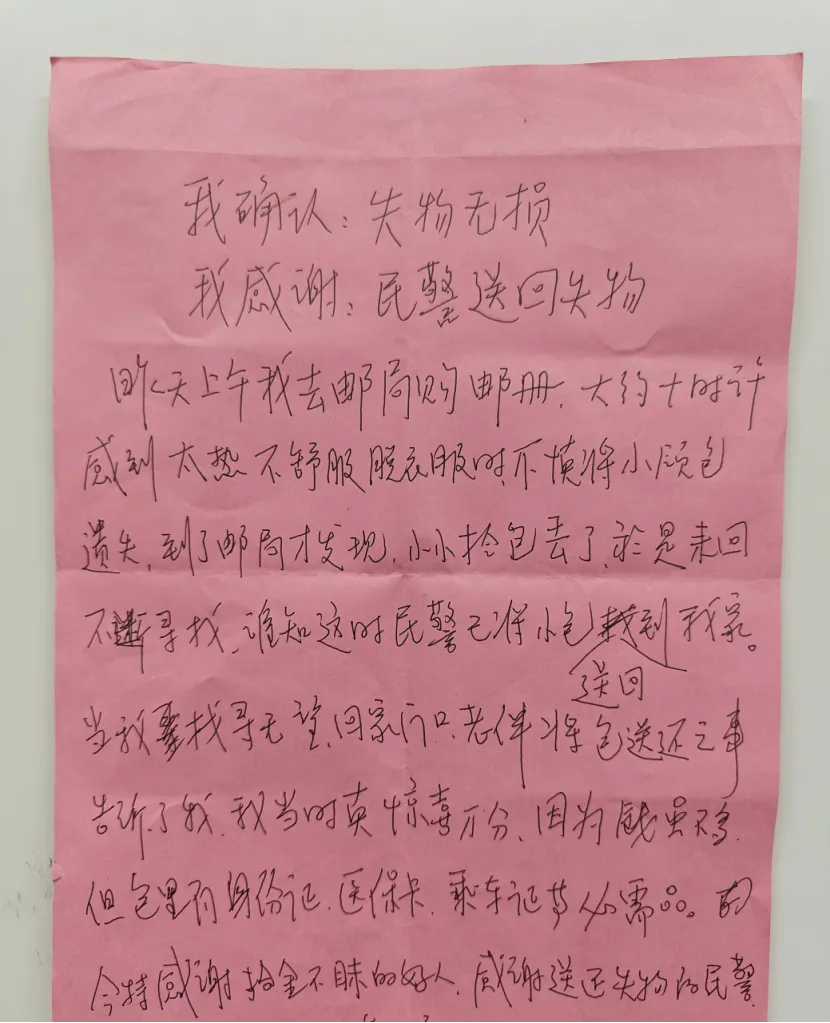 我确认：失物无损
我感谢：民警送回失物
昨天上午我去邮局购邮册，大约十时许
感到太热不舒服脱衣服时，不慎将小颈包
遗失，到了邮局才发现，小小拎包丢了，於是来回
不断寻找，谁知这时民警已将小包送回我家。
当我找寻无望，回家门口，老伴将包送还之事
告诉了我，我当时真惊喜万分，因为钱虽
但包里有身份证、医保卡、乘车证等必需品。
今特感谢拾金不昧的好人，感谢送还失物的民警